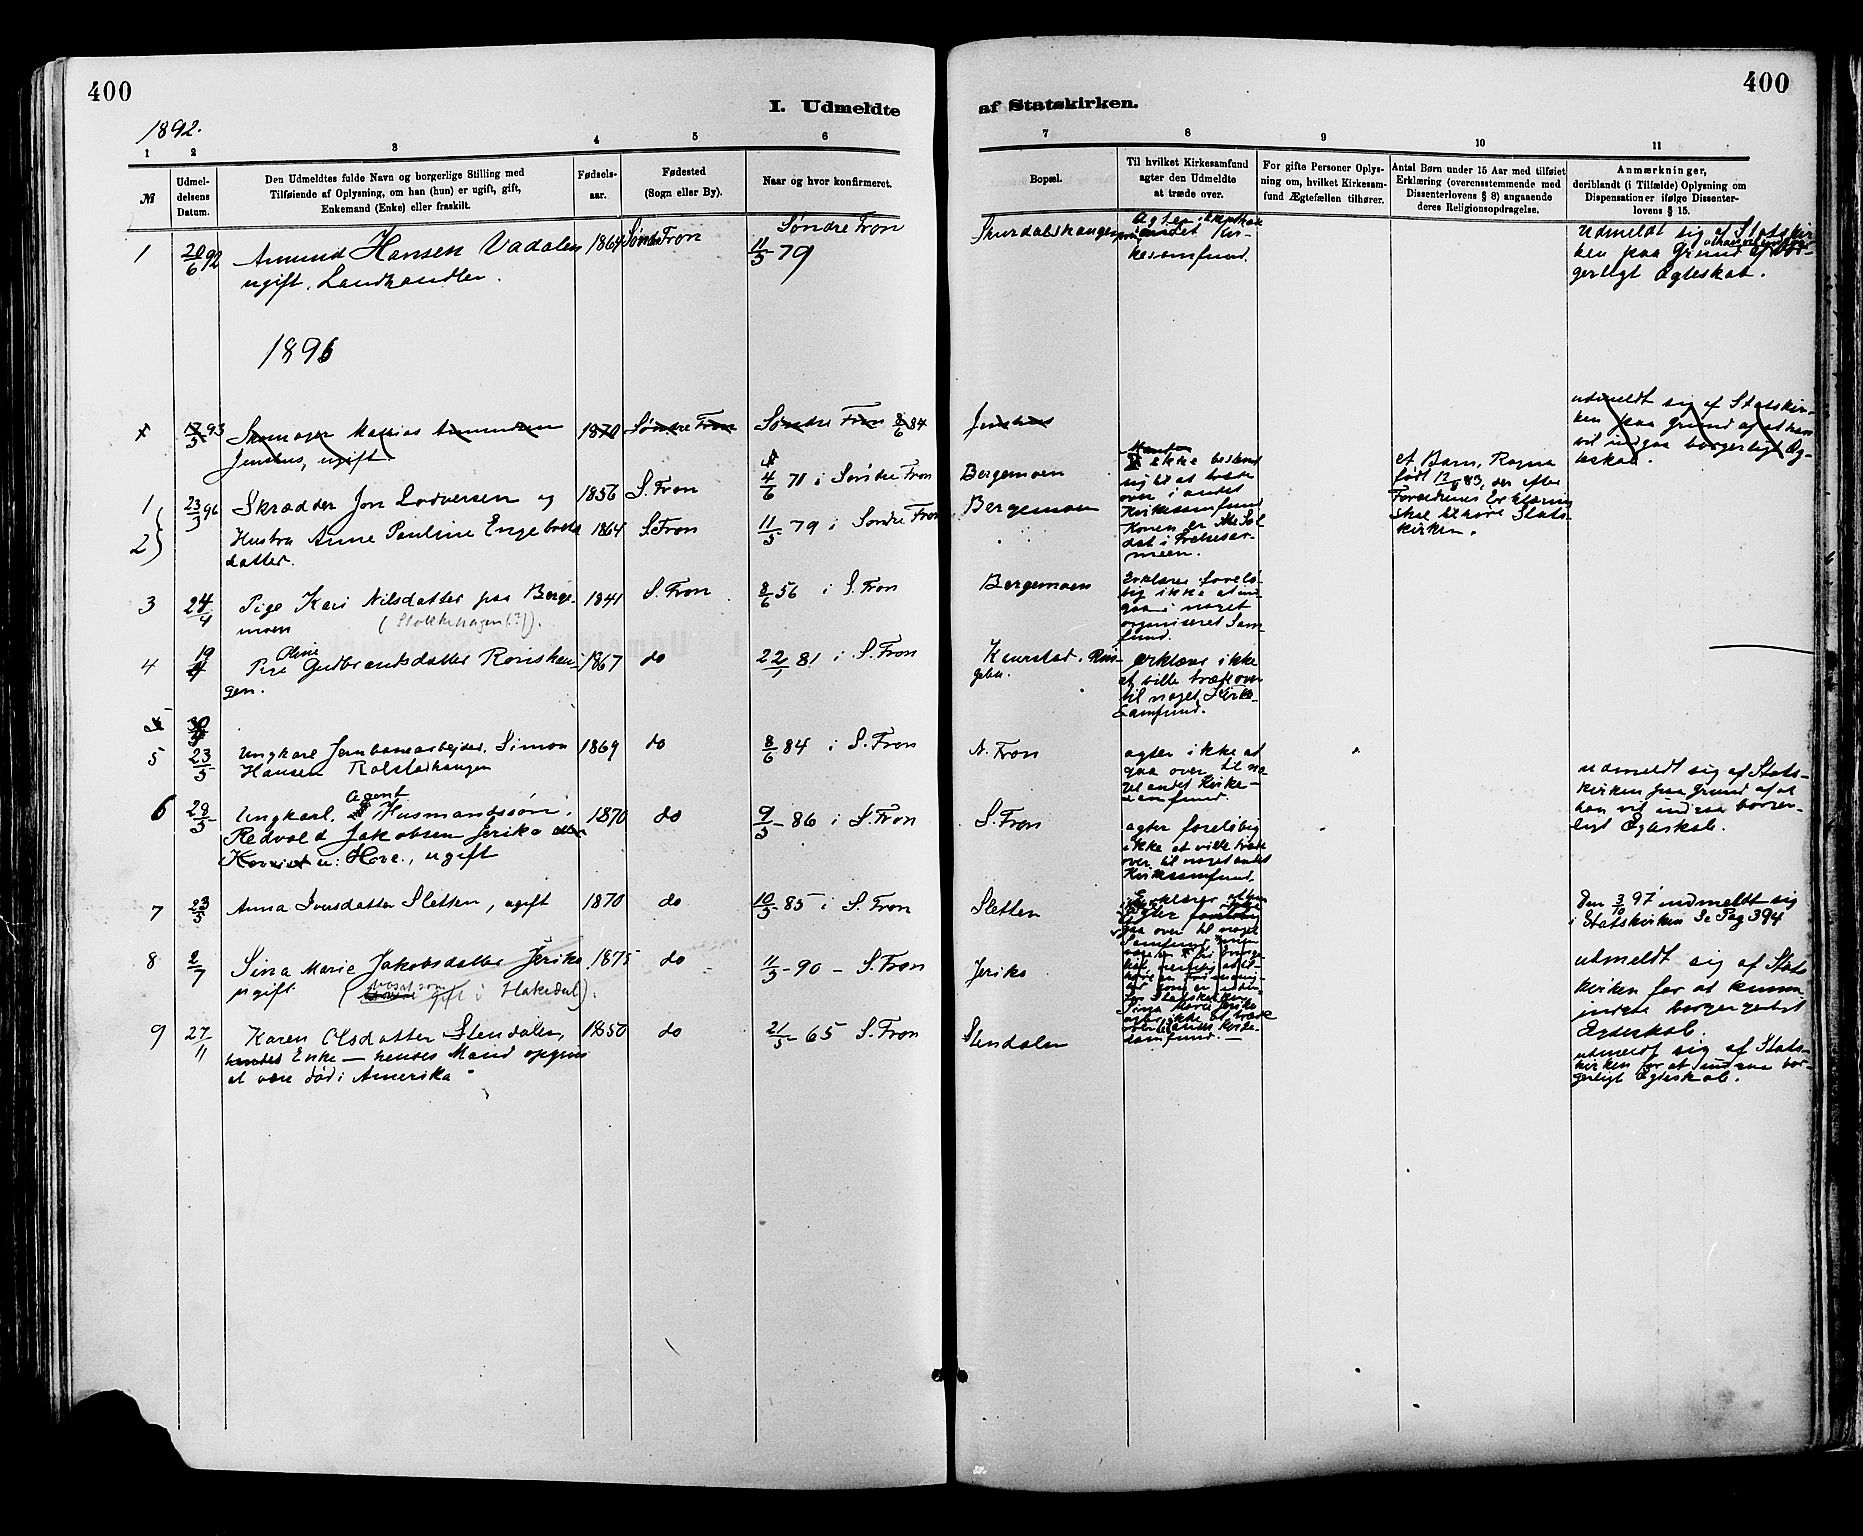 400
400
I. Udmeldte
af Statskirken.
1892.
1 2 3 4 5 6
7 8 9 10 11
№
Udmel-
delsens
Datum.
Den Udmeldtes fulde Navn og borgerlige Stilling med
Tilføiende af Oplysning, om han (hun) er ugift, gift,
Enkemand (Enke) eller fraskilt.
Fødsels-
aar.
Fødested
(Sogn eller By).
Naar og hvor konfirmeret.
Bopæl.
Til hvilket Kirkesamfund
agter den Udmeldte
at træde over.
For gifte Personer Oplys-
ning om, hvilket Kirkesam-
fund Ægtefællen tilhører.
Antal Børn under 15 Aar med tilføiet
Erklæring (overensstemmende med
Dissenterlovens § 8) angaaende
deres Religionsopdragelse.
Anmærkninger,
deriblandt (i Tilfælde) Oplysning om
Dispensationer ifølge Dissenter-
lovens § 15.
1
20/6 92
Amund Hansen Vadalen
ugift, Landhandler.
1864
Søndre Fron
Søndre Fron
11/5 79
Skurdalshaugen
Agter
andet Kir-
kesamfund.
Udmeldt sig af Statskir-
ken paa Grund af
gerligt Ægteskab.
1896
93
Skomager Mathias Amundsen
Jenshus, ugift
1870
Søndre Fron
Søndre Fron 8/6 84
Jenshus
udmeldt sig af Statskir-
ken paa grund af at han
vil indgaa borgerligt Æg-
teskab.
1
2
23/3 96
Skrædder Jon Lodversen og
Hustru Anne Pauline Engebrets
datter.
1856
1864
S. Fron
S. Fron
4/6 71 i Søndre Fron
11/5 79 i Søndre Fron
Bergemoen
Bergemoen
Manden
ikke bestemt
sig til at træde
over i andet
Kirkesamfund
Konen er Sol
dat i Frelsesar-
meen.
et Barn, Ragna
født 83, der efter
Forældrenes Erklæring
skal tilhøre Stats-
kirken.
3
24/4
Pige Kari Nilsdatter paa Berge-
moen (Stokkehagen(?)).
1841
S. Fron
8/6 56 i S. Fron
Bergemoen
Erklærer forelø-
big ikke at ind
gaa i noget
organiseret Sam-
fund.
4
19/4
Oline
Gudbrandsdatter Ronishau-
gen.
1867
do
22/1 81 i S. Fron
Ringebu.
erklærer ikke
at ville træde over
til noget Kirke-
samfund.
5
23/5
Ungkarl Jernbanearbejder. Simon
Hansen Rolstadhaugen
1869
do
8/6 84 i S. Fron
N. Fron
agter ikke at
gaa over til no
get andet Kirke-
samfund.
6
29/5
Agent
Ungkarl, Husmandssøn
Redvald Jakobsen Jeriko
u: Hove., ugift
1870
do
9/5 - 86 i S. Fron
S. Fron
agter foreløbig
ikke at ville træde
over til noget andet
Kirkesamfund.
udmeldt sig af Stats-
kirken paa grund af at
han vil indgaa borger-
ligt Ægteskab.
7
23/5
Anna Iversdatter Sletten, ugift
1870
do
10/5 - 85 i S. Fron
Sletten
gaa over til noget
Samfund
Den 3/10 97 indmeldt sig
i Statskirken Se Pag 394
8
2/7
Sina Marie Jakobsdatter Jeriko
ugift (bosat som gift i Hakedal).
1875
do
11/5 - 90 - S. Fron
Jeriko
Sina Marie Jeriko
agter ikke at træde
over til andet Kirke-
samfund. -
udmeldt sig af Stats
kirken for at kunne
indgaa borgerligt
Ægteskab.
9
27/11
Karen Olsdatter Stendalen,
Enke - hendes Mand opgives
at være død i Amerika
1850
do
21/5 - 65 S. Fron
Stendalen
udmeldt sig af Stats-
kirken for at indgaa bor-
gerligt Ægteskab.